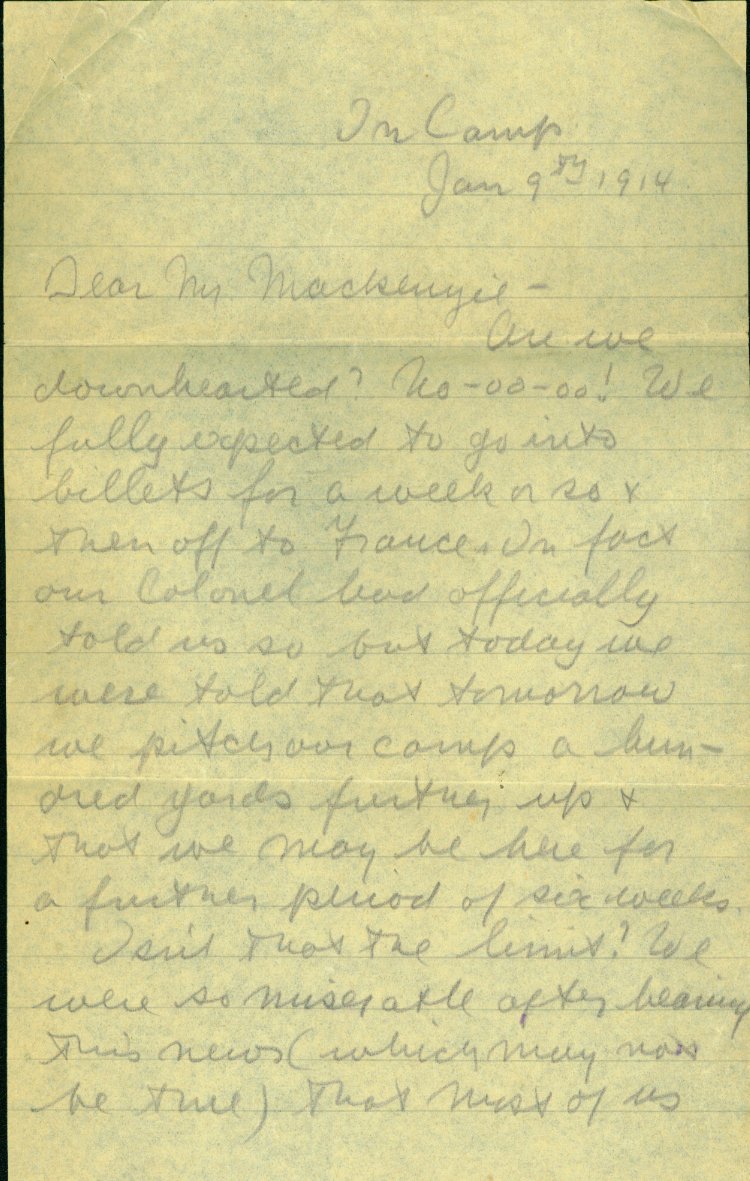 In Camp
Jan 9th 1914.
Dear Mr Mackenzie -
Are we
downhearted? No-oo-oo! We
fully expected to go into
billets for a week or so &
then off to France. In fact
our Colonel had officially
told us so but today we
were told that tomorrow
we pitch our camp a hun-
dred yards further up &
that we may be here for
a further period of six weeks.
Isn't that the limit! We
were so miserable after hearing
this news (which may not
be true) that most of us